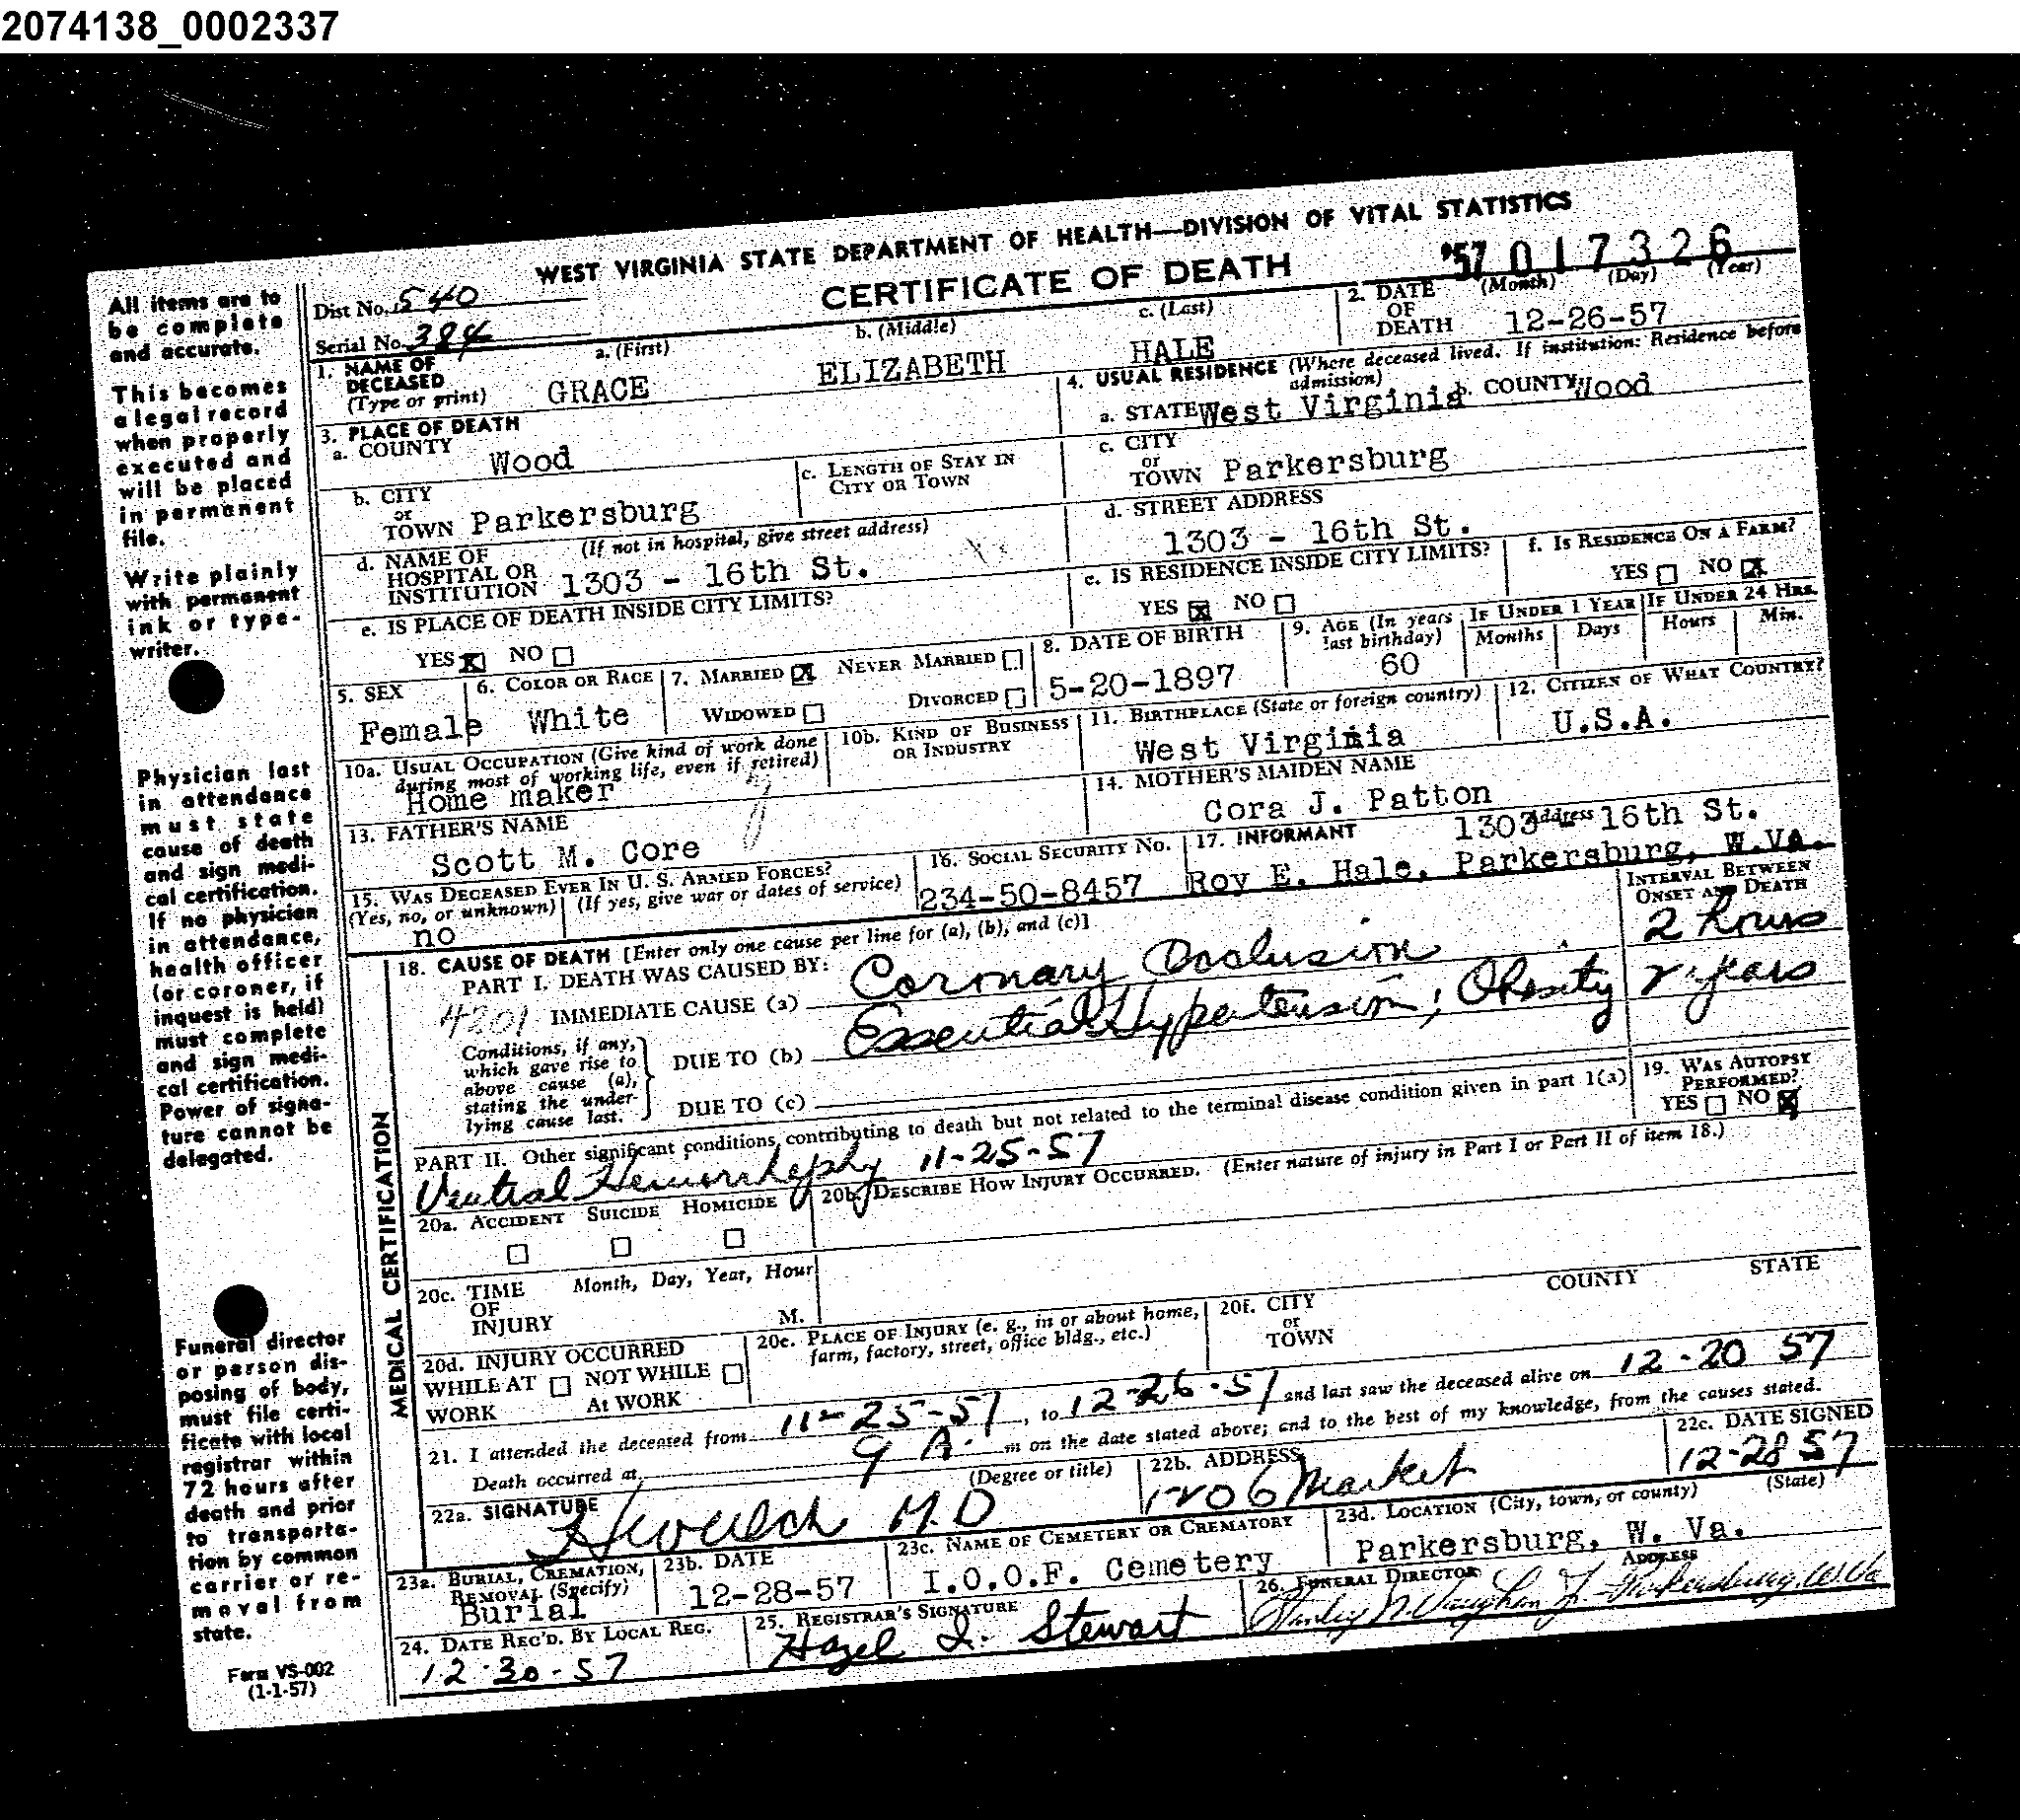 2074138_0002337
WEST VIRGINIA STATE DEPARTMENT OF HEALTH—DIVISION OF VITAL STATISTICS
CERTIFICATE OF DEATH
'57 017326
Dist No. 540
Serial No. 384
1. NAME OF DECEASED (Type or print) a. (First) GRACE b. (Middle) ELIZABETH c. (Last) HALE
2. DATE OF DEATH (Month) (Day) (Year) 12-26-57
3. PLACE OF DEATH
a. COUNTY Wood
b. CITY or TOWN Parkersburg
c. LENGTH OF STAY IN CITY OR TOWN
d. NAME OF HOSPITAL OR INSTITUTION (If not in hospital, give street address) 1303 - 16th St.
e. IS PLACE OF DEATH INSIDE CITY LIMITS?
YES ☒ NO ☐
4. USUAL RESIDENCE (Where deceased lived. If institution: Residence before admission)
a. STATE West Virginia b. COUNTY Wood
c. CITY or TOWN Parkersburg
d. STREET ADDRESS
1303 - 16th St.
e. IS RESIDENCE INSIDE CITY LIMITS?
YES ☒ NO ☐
f. IS RESIDENCE ON A FARM?
YES ☐ NO ☒
5. SEX
Female
6. COLOR OR RACE
White
7. MARRIED ☒ NEVER MARRIED ☐
WIDOWED ☐ DIVORCED ☐
8. DATE OF BIRTH
5-20-1897
9. AGE (In years last birthday)
60
IF UNDER 1 YEAR
Months Days
IF UNDER 24 HRS.
Hours Min.
10a. USUAL OCCUPATION (Give kind of work done during most of working life, even if retired)
Home maker
10b. KIND OF BUSINESS OR INDUSTRY
11. BIRTHPLACE (State or foreign country)
West Virginia
12. CITIZEN OF WHAT COUNTRY?
U.S.A.
13. FATHER'S NAME
Scott M. Core
14. MOTHER'S MAIDEN NAME
Cora J. Patton
15. WAS DECEASED EVER IN U. S. ARMED FORCES?
(Yes, no, or unknown) (If yes, give war or dates of service)
no
16. SOCIAL SECURITY NO.
234-50-8457
17. INFORMANT Address
1303 - 16th St.
Roy E. Hale, Parkersburg, W.Va.
MEDICAL CERTIFICATION
18. CAUSE OF DEATH [Enter only one cause per line for (a), (b), and (c)]
INTERVAL BETWEEN ONSET AND DEATH
PART I. DEATH WAS CAUSED BY:
4201 IMMEDIATE CAUSE (a) Coronary Occlusion 2 hours
Conditions, if any, which gave rise to above cause (a), stating the underlying cause last.
DUE TO (b) Essential Hypertension, Obesity 2 years
DUE TO (c)
PART II. Other significant conditions contributing to death but not related to the terminal disease condition given in part I(a)
Ventral Hemorrhaphy 11-25-57
19. WAS AUTOPSY PERFORMED?
YES ☐ NO ☒
20a. ACCIDENT SUICIDE HOMICIDE
☐ ☐ ☐
20b. DESCRIBE HOW INJURY OCCURRED. (Enter nature of injury in Part I or Part II of item 18.)
20c. TIME OF INJURY Month, Day, Year, Hour
M.
20d. INJURY OCCURRED
WHILE AT WORK ☐ NOT WHILE At WORK ☐
20e. PLACE OF INJURY (e. g., in or about home, farm, factory, street, office bldg., etc.)
20f. CITY or TOWN COUNTY STATE
21. I attended the deceased from 11-25-57, to 12-26-57 and last saw the deceased alive on 12-20 57
Death occurred at 9 A. m on the date stated above; and to the best of my knowledge, from the causes stated.
22a. SIGNATURE (Degree or title)
M.D
22b. ADDRESS
1206 Market
22c. DATE SIGNED
12-28 57
23a. BURIAL, CREMATION, REMOVAL (Specify)
Burial
23b. DATE
12-28-57
23c. NAME OF CEMETERY OR CREMATORY
I.O.O.F. Cemetery
23d. LOCATION (City, town, or county) (State)
Parkersburg, W. Va.
24. DATE REC'D. BY LOCAL REG.
12-30-57
25. REGISTRAR'S SIGNATURE
Hazel I. Stewart
26. FUNERAL DIRECTOR ADDRESS
Vaughan Jr. Parkersburg, W.Va
All items are to
be complete
and accurate.
This becomes
a legal record
when properly
executed and
will be placed
in permanent
file.
Write plainly
with permanent
ink or type-
writer.
Physician last
in attendance
must state
cause of death
and sign medi-
cal certification.
If no physician
in attendance,
health officer
(or coroner, if
inquest is held)
must complete
and sign medi-
cal certification.
Power of signa-
ture cannot be
delegated.
Funeral director
or person dis-
posing of body,
must file certi-
ficate with local
registrar within
72 hours after
death and prior
to transporta-
tion by common
carrier or re-
moval from
state.
Form VS-002
(1-1-57)